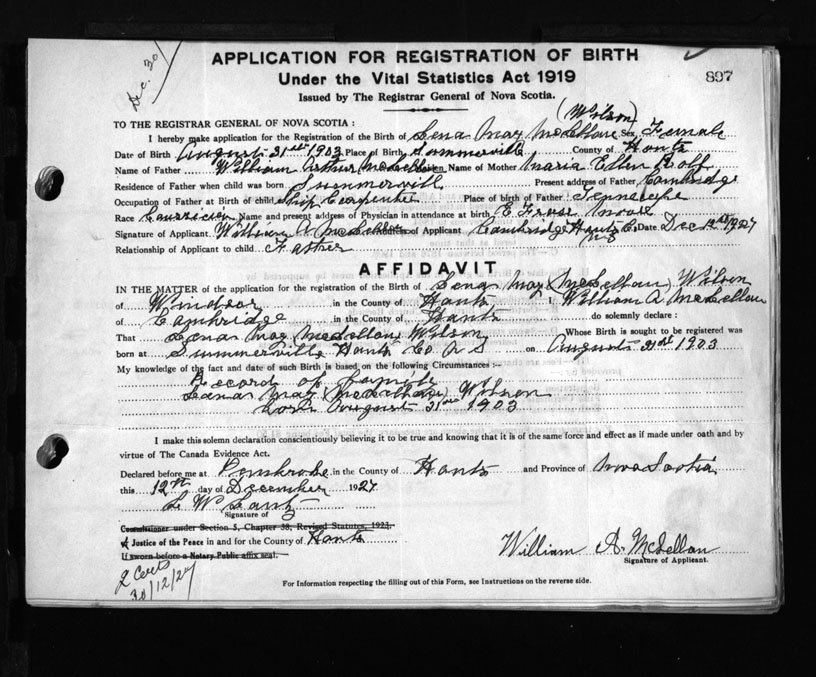 Dec. 30/
APPLICATION FOR REGISTRATION OF BIRTH
Under the Vital Statistics Act 1919
897
Issued by The Registrar General of Nova Scotia.
(Wilson)
TO THE REGISTRAR GENERAL OF NOVA SCOTIA:
I hereby make application for the Registration of the Birth of Lena May McLellan Sex Female
Date of Birth August 31st 1903 Place of Birth Summerville County of Hants
Name of Father William Arthur McLellan Name of Mother Maria Ellen
Residence of Father when child was born Summervill Present address of Father Cambridge
Occupation of Father at Birth of child Ship Carpenter Place of birth of Father Tennecape
Race Name and present address of Physician in attendance at birth E
Signature of Applicant William A McLellan Address of Applicant Cambridge Hants Co Date Dec 12th 1927
NS
Relationship of Applicant to child Father
AFFIDAVIT
IN THE MATTER of the application for the registration of the Birth of Lena May (McLellan) Wilson
of Windsor in the County of Hants I, William A. McLellan
of Cambridge in the County of Hants do solemnly declare:
That Lena May (McLellan) Wilson Whose Birth is sought to be registered was
born at Summerville Hants Co N S on August 31st 1903
My knowledge of the fact and date of such Birth is based on the following Circumstances:—
Record of family
Lena May (McLellan) Wilson
born August 31st 1903
I make this solemn declaration conscientiously believing it to be true and knowing that it is of the same force and effect as if made under oath and by
virtue of The Canada Evidence Act.
Declared before me at Pembroke in the County of Hants and Province of Nova Scotia
this 12th day of December 1927
L W Lantz
Signature of
Commissioner under Section 5, Chapter 38, Revised Statutes, 1923.
Justice of the Peace in and for the County of Hants
If sworn before a Notary Public affix seal.
William A. McLellan
Signature of Applicant.
2 Certs
30/12/27
For Information respecting the filling out of this Form, see Instructions on the reverse side.